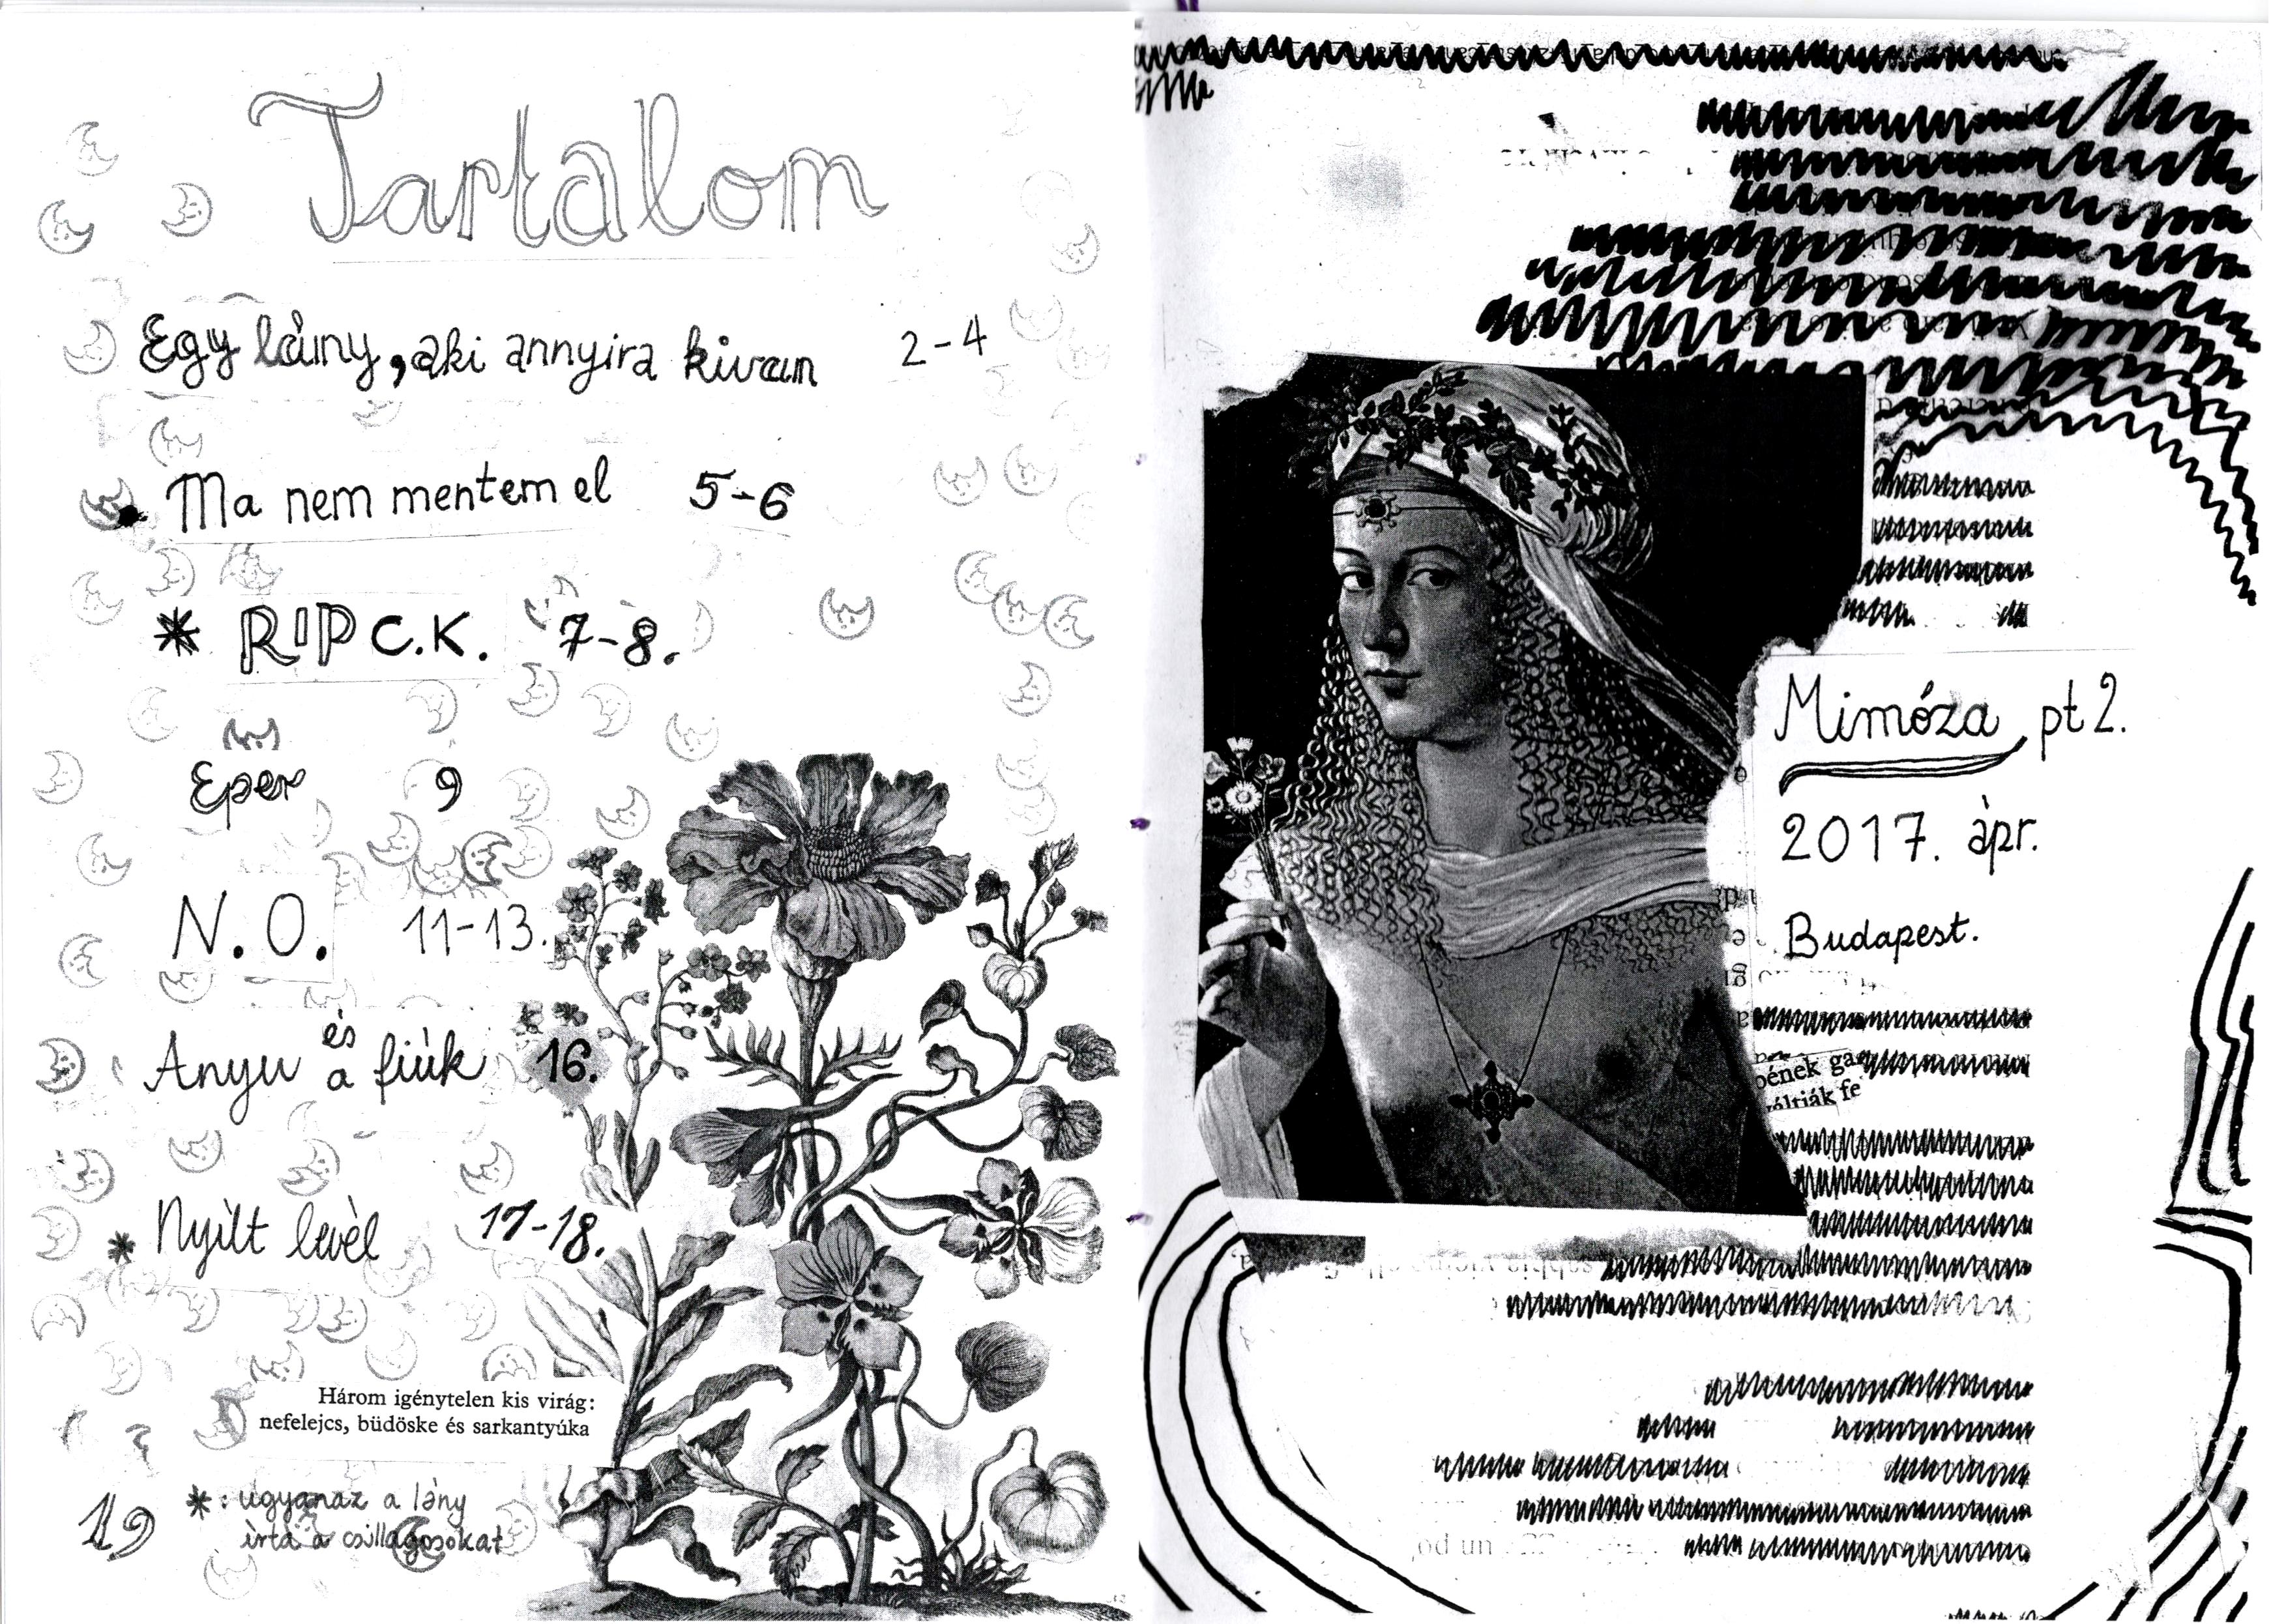 Tartalom
Egy lány, aki annyira kivan 2-4
Ma nem mentem el 5-6
* RIP C.K. 7-8.
Eper 9
N.O. 11-13.
Anyu és a fiúk 16.
* Nyílt levél 17-18.
Három igénytelen kis virág:
nefelejcs, büdöske és sarkantyúka
*: ugyanaz a lány
írta a csillagosokat
19
Mimóza pt 2.
2017. ápr.
Budapest.
pének